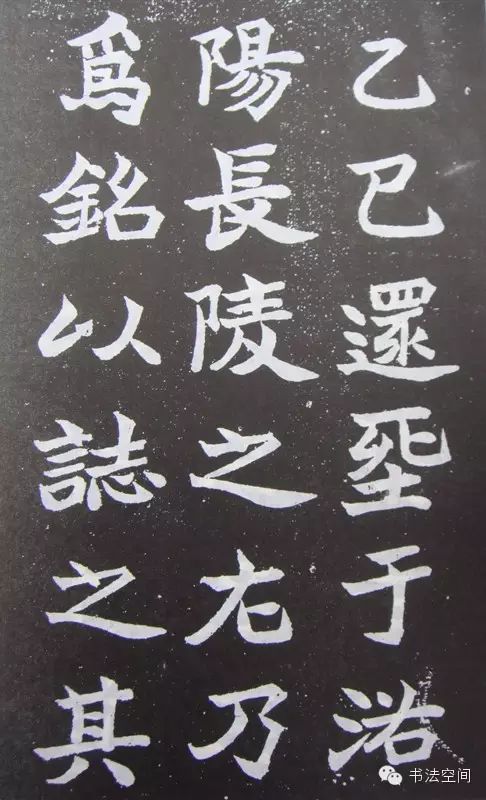 乙巳還塟于洛
陽長陵之左乃
爲銘以誌之其
书法空间